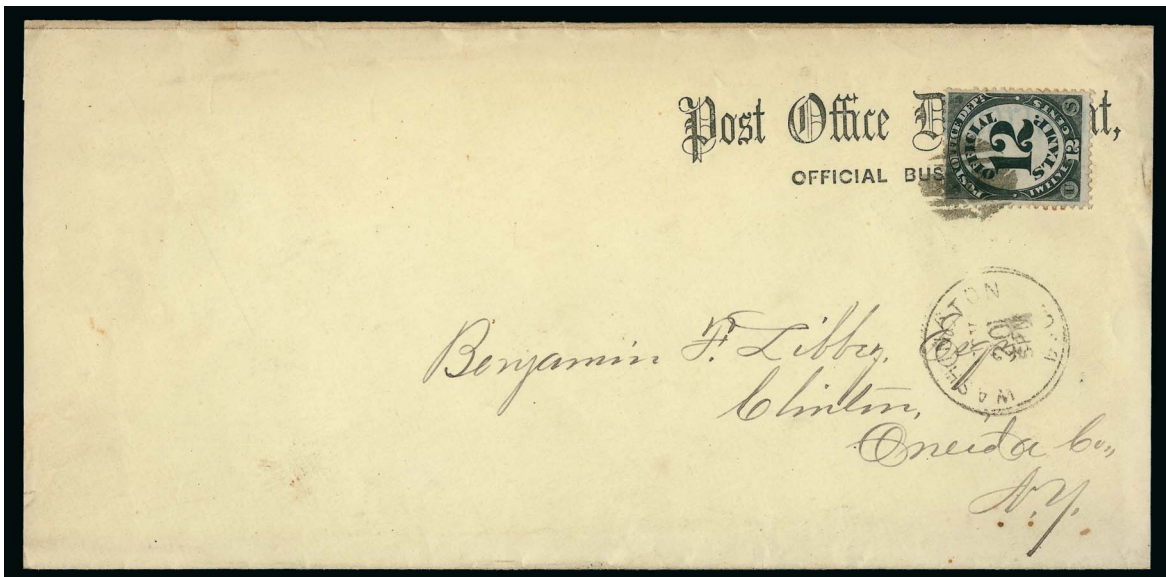 Post Office D t,
OFFICIAL BUS
POST OFFICE DEPT.
OFFICIAL
12
STAMP.
TWELVE 12 CENTS
U S
WASHINGTON
20
5 PM
Benjamin F. Libbey, Esq
Clinton,
Oneida Co.,
N.Y.